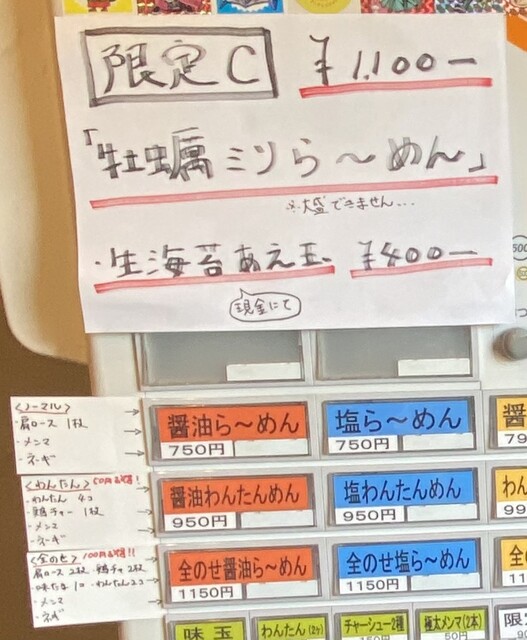 限定C ¥1.100ー
「牡蠣ミソら〜めん」
※大盛できません...
・生海苔あえ玉 ¥400ー
現金にて
<ノーマル>
・肩ロース 1枚
・メンマ
・ネギ
醤油ら〜めん
750円
塩ら〜めん
750円
<わんたん> 50円お得!
・わんたん 4コ
・鶏チャー 1枚
・メンマ
・ネギ
醤油わんたんめん
950円
塩わんたんめん
950円
<全のせ> 100円お得!!
肩ロース 2枚 ・鶏チャ 2枚
・味たま 1コ ・わんたん2コ
・メンマ
・ネギ
全のせ醤油ら〜めん
1150円
全のせ塩ら〜めん
1150円
味玉
わんたん(2ヶ)
チャーシュー2種
極太メンマ(2本)
限